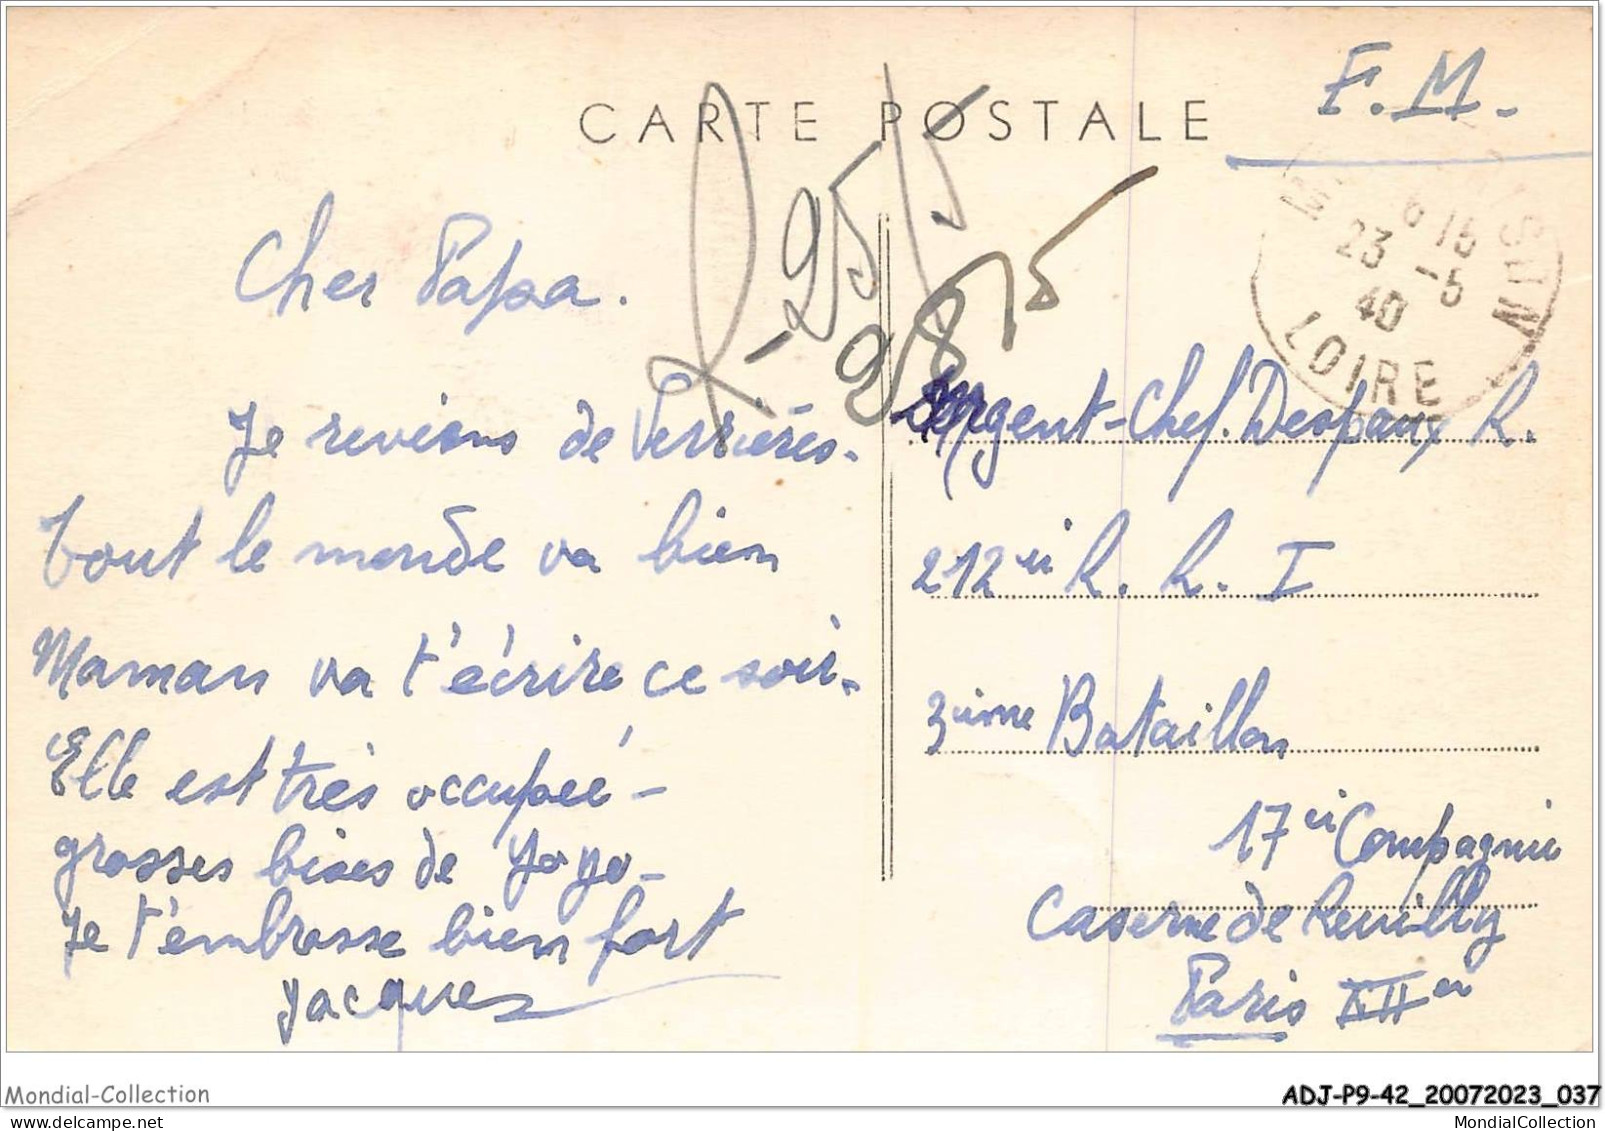 CARTE POSTALE
F. M.
6 15
23 -5
40
LOIRE
R - 25/5
98/5
Cher Papa.
Je reviens de Verrières.
Tout le monde va bien
Maman va t'écrire ce soir.
Elle est très occupéé -
grosses bises de Yoyo -
Je t'embrasse bien fort
Jacques
Sergent-Chef. Despaux R.
212 R. R. I
3ième Bataillon
17 Compagnie
Caserne de Reuilly
Paris XII
Mondial-Collection
ADJ-P9-42_20072023_037
MondialCollection
MondialCollection